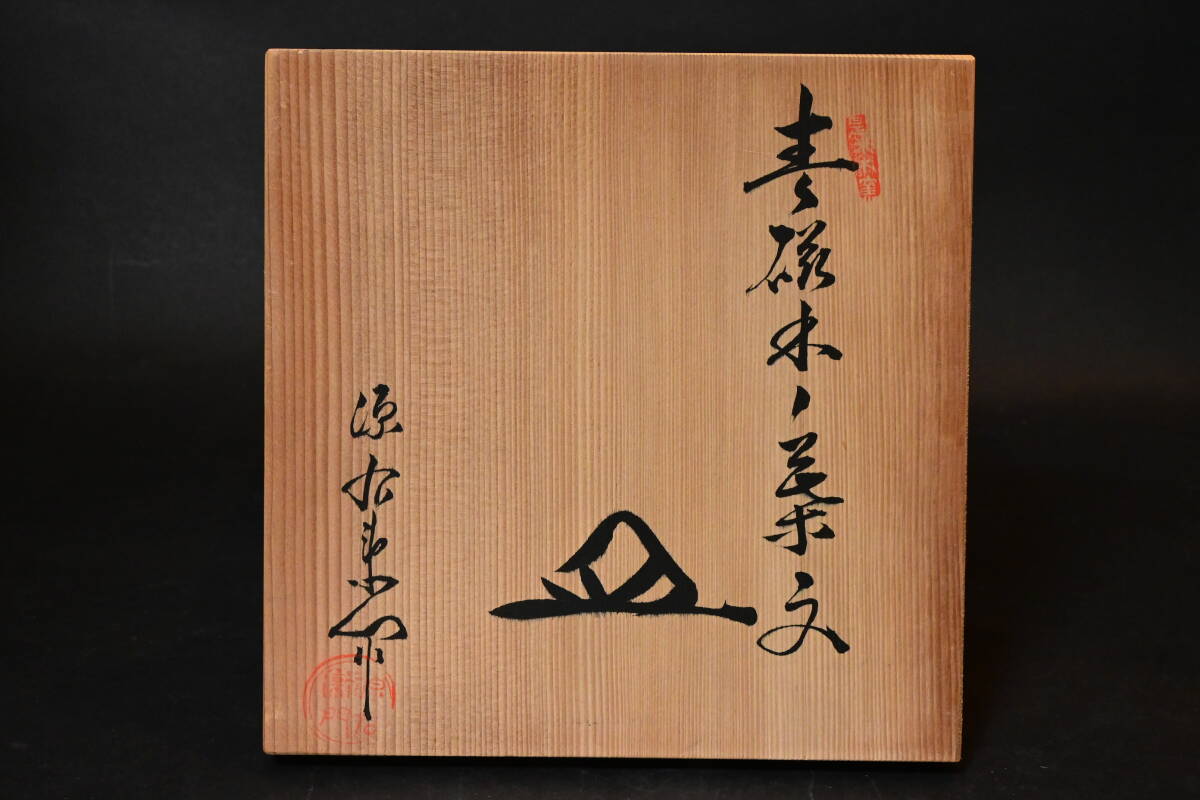 青磁木ノ葉文
皿
源右衛門